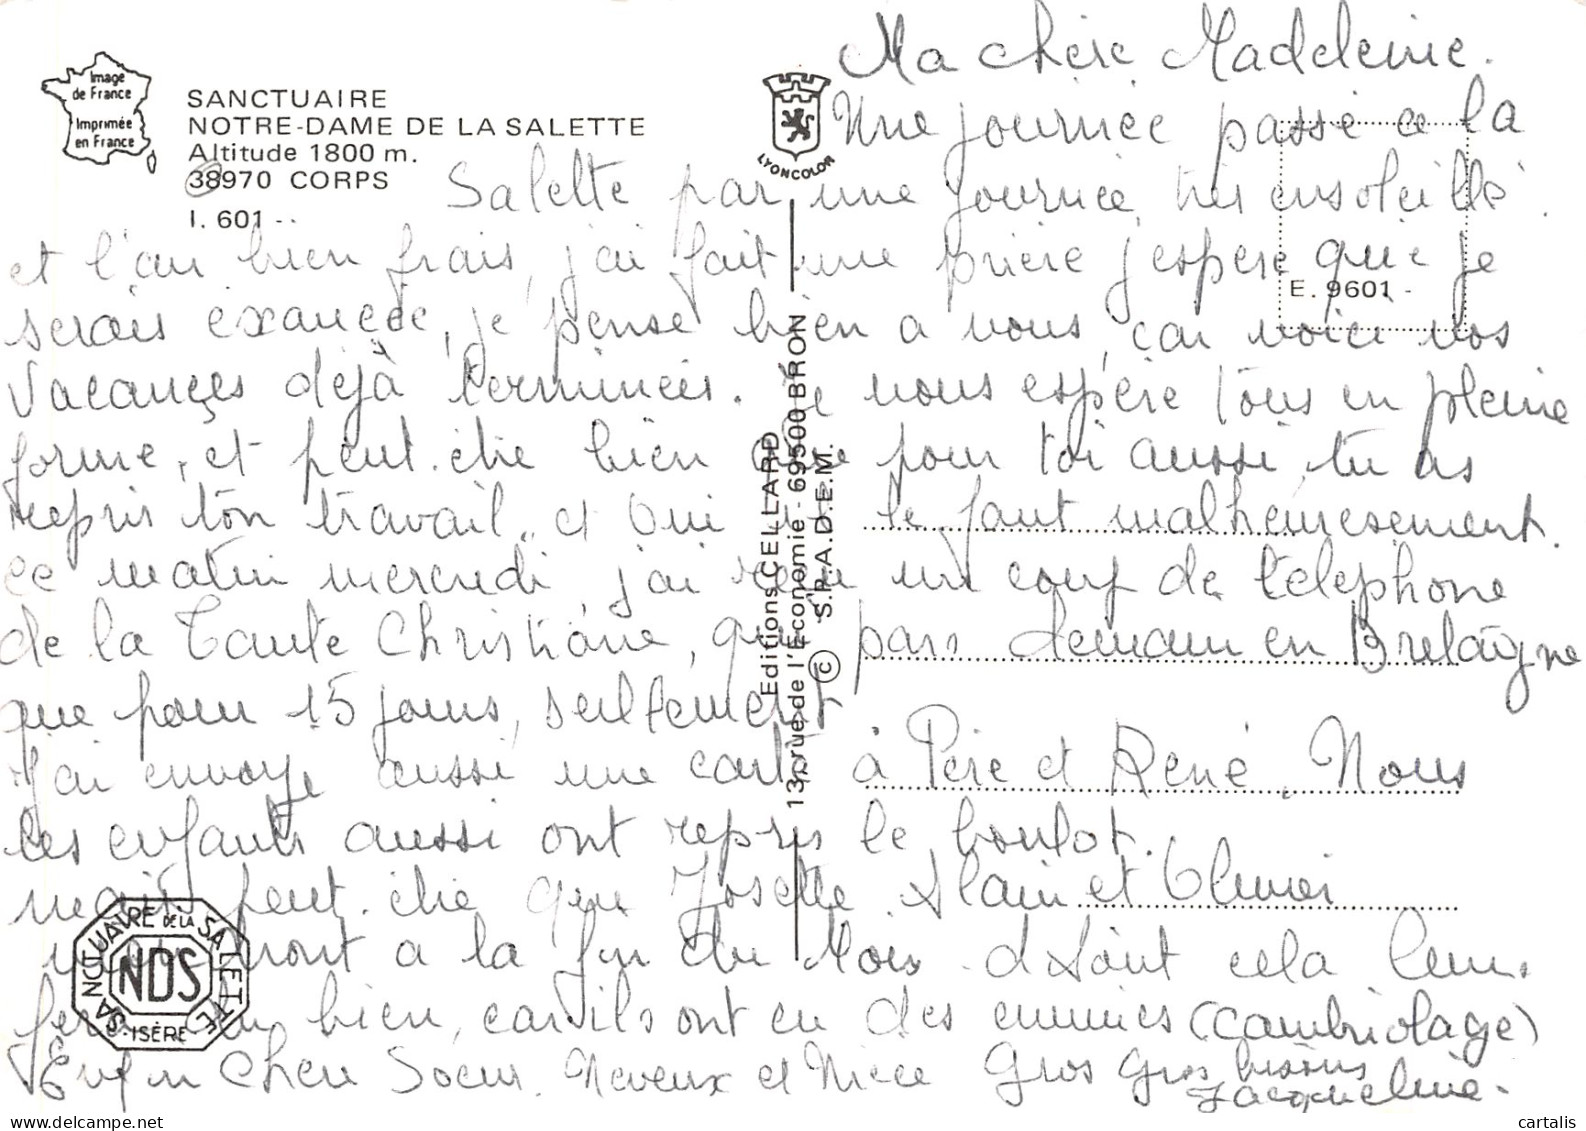 Image
de France
Imprimée
en France
SANCTUAIRE
NOTRE-DAME DE LA SALETTE
Altitude 1800 m.
38970 CORPS
I. 601 -
LYONCOLOR
E. 9601 -
Editions CELLARD
13, rue de l'Économie - 69500 BRON
© S.P.A.D.E.M.
Ma chère Madeleine.
Une journée passé a la
Salette par une journée très ensoleillé.
et l'air bien frais, j'ai fait une prière j'espère que je
serais exaucée, je pense bien a vous, car voici vos
vacances déjà terminées. Je vous espère tous en pleine
forme, et peut.être bien que pour toi aussi, tu as
repris ton travail, et oui il le faut malheuresement.
ce matin mercredi, j'ai reçu un coup de télephone
de la Tante Christiane, qui pars demain en Bretaigne
que pour 15 jours, seultement
J'ai envoye aussi une carte à Père et René. Nous
les enfants aussi ont repris le boulot.
mais peut.être que Josette Alain et Olivier
viendront a la fin du Mois. d Aôut cela leur
fera du bien, car ils ont eu des ennuies (cambriolage)
Enfin Chère Soeur, Neveux et Nièce Gros Gros bisous
Jacqueline.
SANCTUAIRE DE LA SALETTE
NDS
ISÈRE
cartalis